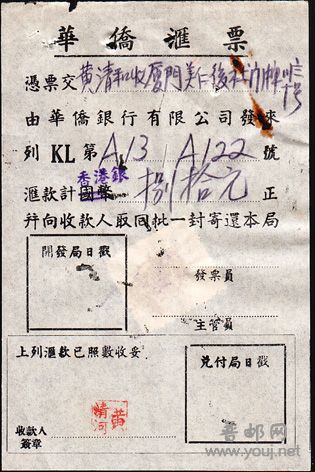 華僑滙票
憑票交黃清和收厦門美仁後社門牌
由華僑銀行有限公司發來
列 KL 第 A/13 A/122 號
香港銀
滙款計國幣 捌拾元 正
幷向收款人取同批一封寄還本局
開發局日戳
發票員
主管員
上列滙款已照數收妥
兌付局日戳
黃清河
收款人
簽章
吾邮网
www.youj.net